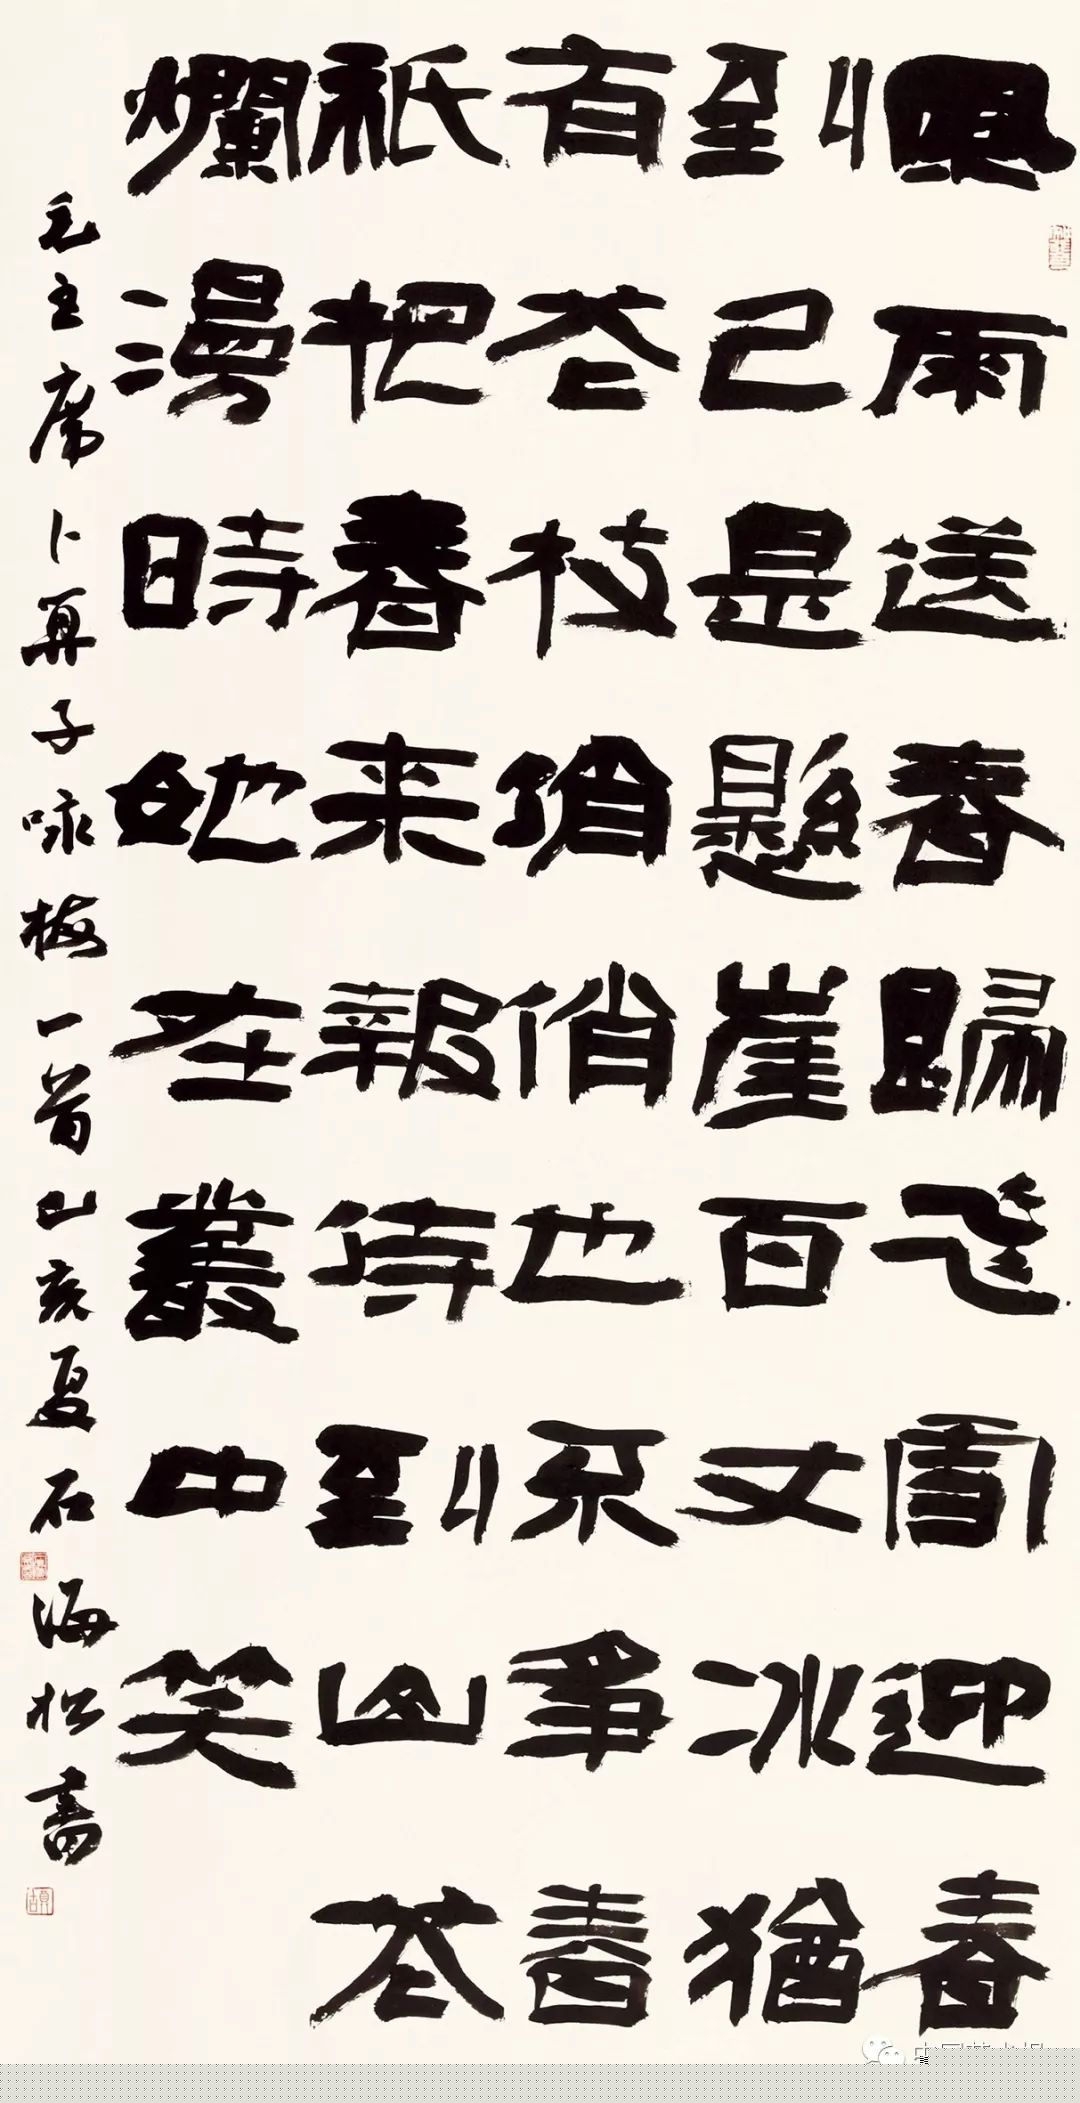 風雨送春歸飛雪迎春
到已是懸崖百丈冰猶
有花枝俏俏也不爭春
祇把春来報待到山花
爛漫時她在叢中笑
毛主席卜算子咏梅一首己亥夏石海松書